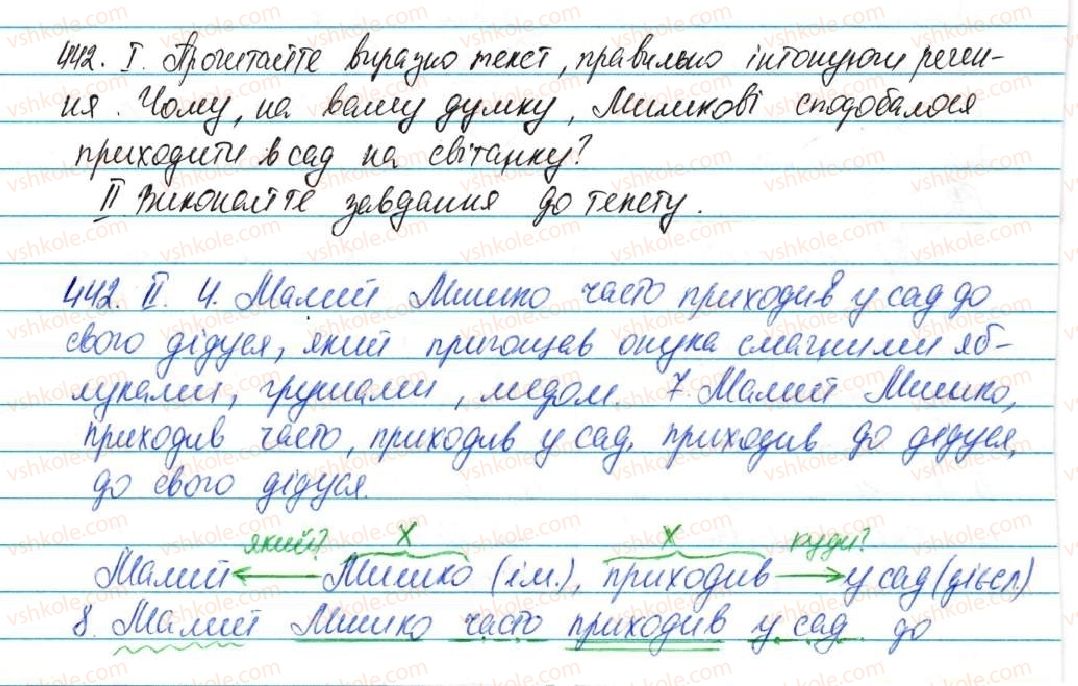 442. І. Прочитайте виразно текст, правильно інтонуючи речен-
ня. Чому, на вашу думку, Мишкові сподобалося
приходити в сад на світанку?
ІІ Виконайте завдання до тексту.
442. ІІ. 4. Малий Мишко часто приходив у сад до
свого дідуся, який пригощав онука смачними яб-
луками, грушами, медом. 7. Малий Мишко,
приходив часто, приходив у сад, приходив до дідуся,
до свого дідуся.
який? х х куди?
Малий Мишко (ім.), приходив у сад (дієсл.)
8. Малий Мишко часто приходив у сад до
vshkole.com